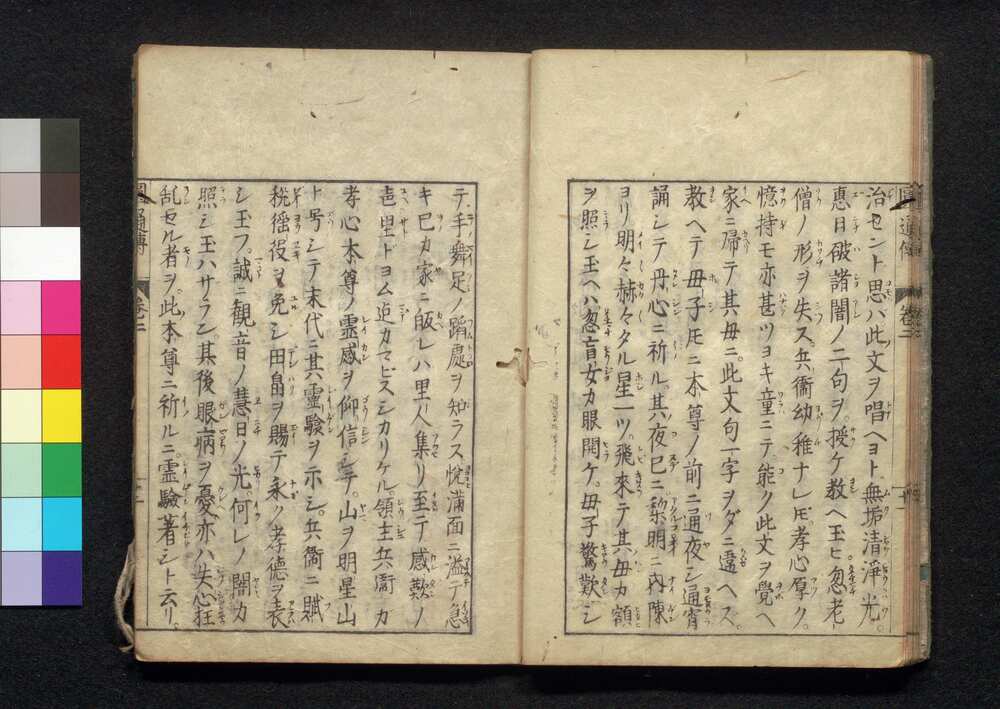 治セント思ハバ此文ヲ唱ヘヨト無垢清淨光。
惠日破諸闇ノ二句ヲ。授ケ教ヘ玉ヒ忽老
僧ノ形ヲ失ス。兵衞幼稚ナレ𪜈。孝心厚ク。
憶持モ亦甚ツヨキ童ニテ。能ク此文ヲ覺ヘ
家ニ帰テ其母ニ。此文句一字ヲダニ違ヘス。
教ヘテ母子𪜈ニ本尊ノ前ニ通夜シ通宵
誦シテ丹心ニ祈ル。其夜已ニ黎明ニ内陳
ヨリ明々赫々タル星一ツ。飛來テ其母カ額
ヲ照シ玉ヘハ忽盲女カ眼開ケ。母子驚歎シ
テ手ノ舞足ノ蹈處ヲ知ラス悅滿面ニ溢テ急
キ已カ家ニ皈レハ里人集リ至テ感歎ノ
邑里ドヨム迠カマビスシカリケル。領主兵衞カ
孝心本尊ノ靈感ヲ仰信シテ。山ヲ明星山
ト号シテ末代ニ其靈驗ヲ示シ。兵衞ニ賦
稅徭役ヲ免シ田畠ヲ賜テ永ノ孝德ヲ表
シ玉フ。誠ニ観音ノ慧日ノ光。何レノ闇カ
照シ玉ハサラン。其後眼病ヲ憂亦ハ失心狂
乱セル者ヲ。此本尊ニ祈ルニ靈驗著シト云リ。
通傳
卷二